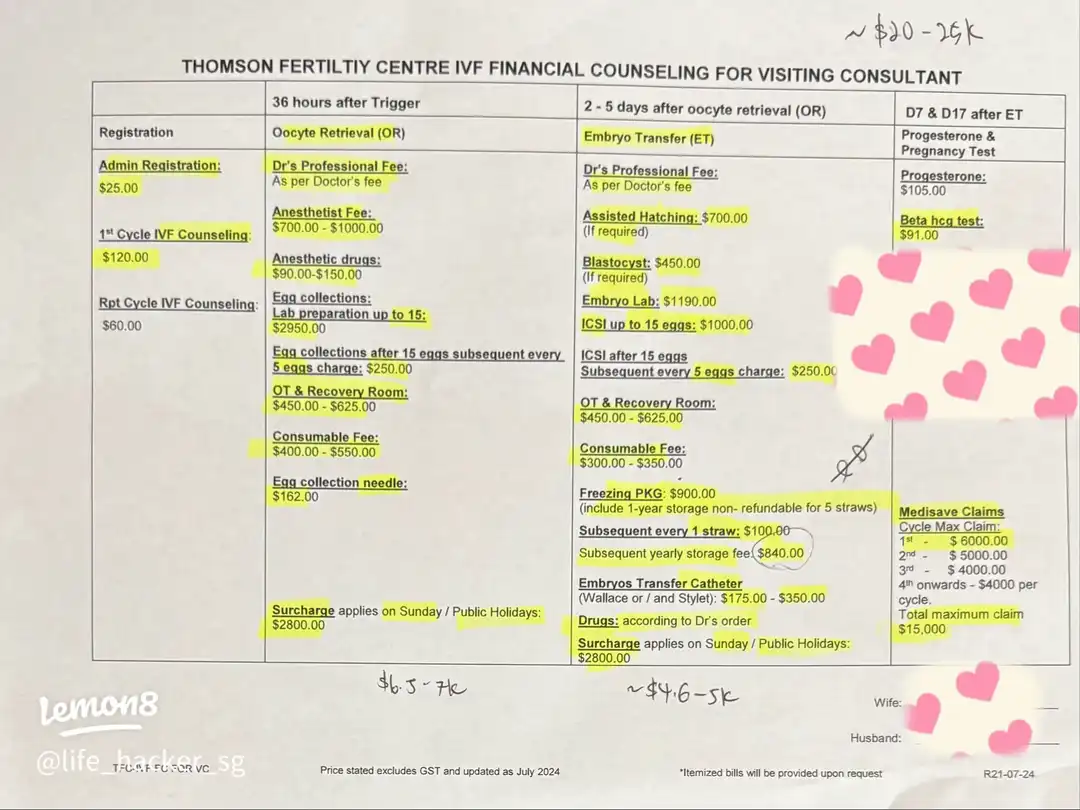 ~ $20 - 25K
THOMSON FERTILTIY CENTRE IVF FINANCIAL COUNSELING FOR VISITING CONSULTANT
36 hours after Trigger
2 - 5 days after oocyte retrieval (OR)
D7 & D17 after ET
Registration
Oocyte Retrieval (OR)
Embryo Transfer (ET)
Progesterone &
Pregnancy Test
Admin Registration:
$25.00
1st Cycle IVF Counseling:
$120.00
Rpt Cycle IVF Counseling:
$60.00
Dr's Professional Fee:
As per Doctor's fee
Anesthetist Fee:
$700.00 - $1000.00
Anesthetic drugs:
$90.00-$150.00
Egg collections:
Lab preparation up to 15:
$2950.00
Egg collections after 15 eggs subsequent every
5 eggs charge: $250.00
OT & Recovery Room:
$450.00 - $625.00
Consumable Fee:
$400.00 - $550.00
Egg collection needle:
$162.00
Surcharge applies on Sunday / Public Holidays:
$2800.00
Dr's Professional Fee:
As per Doctor's fee
Assisted Hatching: $700.00
(If required)
Blastocyst: $450.00
(If required)
Embryo Lab: $1190.00
ICSI up to 15 eggs: $1000.00
ICSI after 15 eggs
Subsequent every 5 eggs charge: $250.00
OT & Recovery Room:
$450.00 - $625.00
Consumable Fee:
$300.00 - $350.00
Freezing PKG: $900.00
(include 1-year storage non- refundable for 5 straws)
Subsequent every 1 straw: $100.00
Subsequent yearly storage fee: $840.00
Embryos Transfer Catheter
(Wallace or / and Stylet): $175.00 - $350.00
Drugs: according to Dr's order
Surcharge applies on Sunday / Public Holidays:
$2800.00
Progesterone:
$105.00
Beta hcg test:
$91.00
Medisave Claims
Cycle Max Claim:
1st - $ 6000.00
2nd - $ 5000.00
3rd - $ 4000.00
4th onwards - $4000 per
cycle.
Total maximum claim
$15,000
$6.5 - 7K
~$4.6 - 5K
Wife:
Husband:
lemon8
@life_hacker_sg
Price stated excludes GST and updated as July 2024
*Itemized bills will be provided upon request
R21-07-24